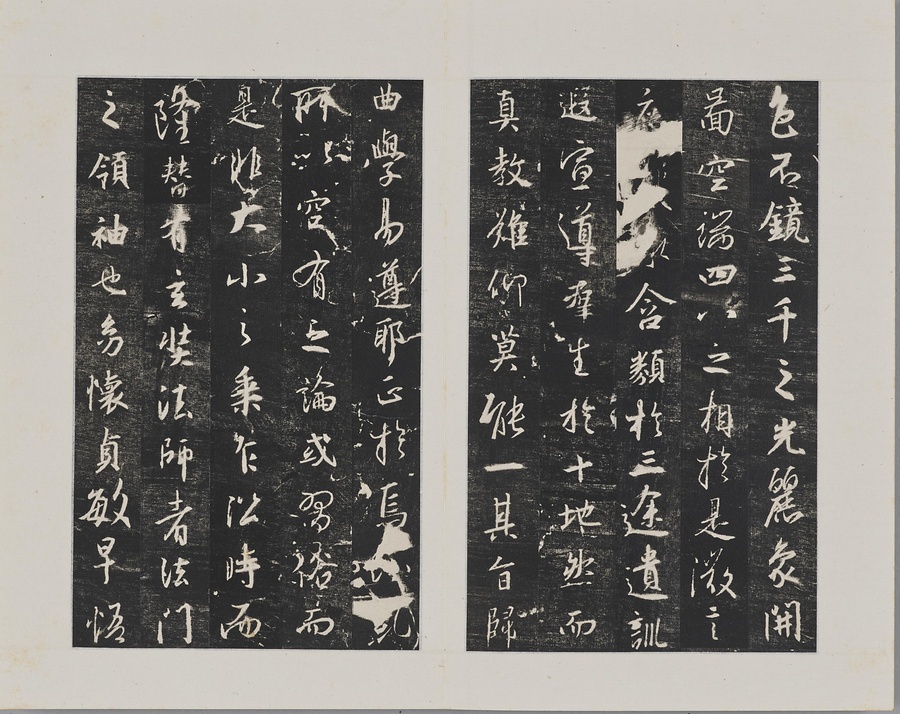 色不鏡三千之光麗象開
啚空端四八之相於是微言
廣含類於三途遺訓
遐宣導羣生於十地然而
真教難仰莫能一其旨歸
曲學易遵耶正於焉
所以空有之論或習俗而
是非大小之乘乍沿時而
隆替有玄奘法師者法門
之領袖也幼懷貞敏早悟